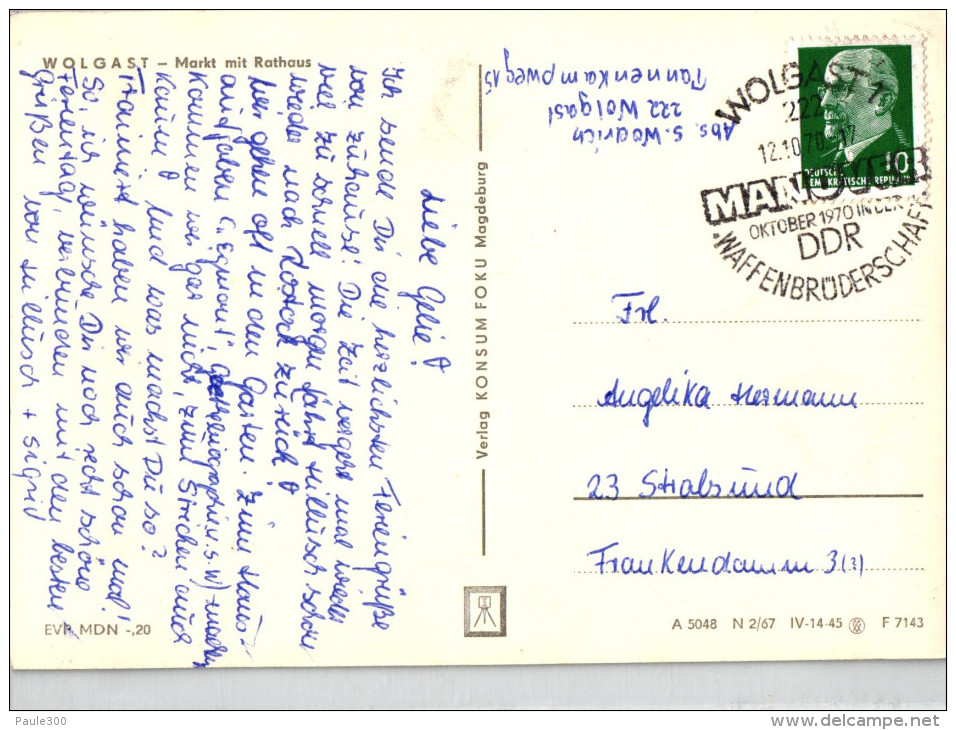 WOLGAST – Markt mit Rathaus
Liebe Gelie!
Ich sende Dir die herzlichsten Feriengrüße
von zuhause! Die Zeit vergeht mal wieder
viel zu schnell, morgen fährt schon
wieder nach Rostock zurück!
Wir gehen oft in den Garten. Zum Haus-
aufgaben („Egmont“, u.s.w) machen
kommen wir gar nicht, zum Stricken auch
kaum! Und was machst Du so?
Trainiert haben wir auch schon mal!
So, ich wünsche Dir noch recht schöne
Ferientage, verbunden mit den besten
Grüßen von + Sigrid
EVP MDN -,20
Verlag KONSUM FOKU Magdeburg
Abs. S. Wodrich
222 Wolgast
Tannenkampweg 15
WOLGAST 1
222
12.10.70.-17
MANÖVER
OKTOBER 1970 IN DER
DDR
WAFFENBRÜDERSCHAFT
10
DEUTSCHE
DEMOKRATISCHE REPUBLIK
Frl.
Angelika Hermann
23 Stralsund
Frankendamm 3(3)
A 5048 N 2/67 IV-14-45 F 7143
Paule300
www.delcampe.net